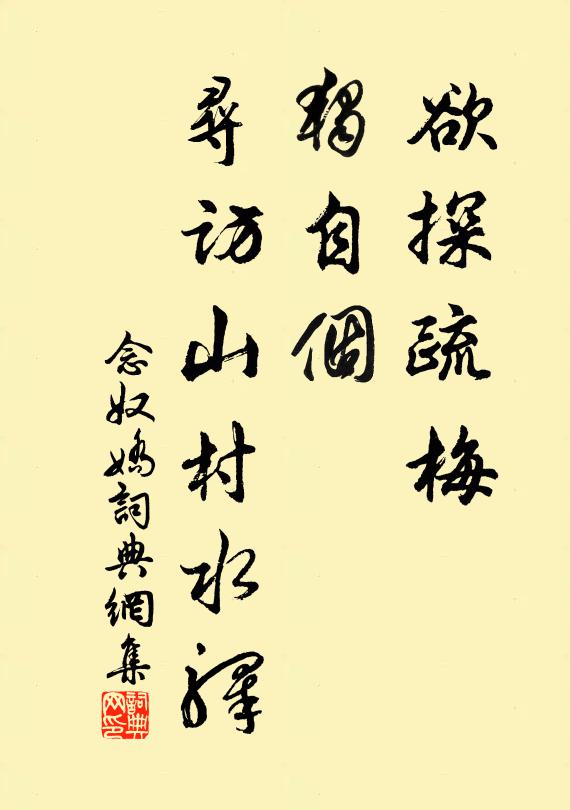 欲探疏梅
獨自個
尋訪山村水驛
念奴嬌詞典網集
詞典网印